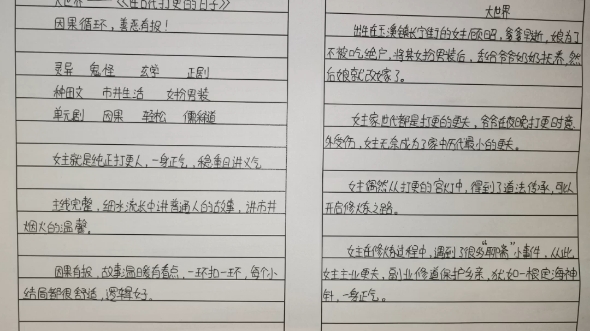 大世界——《在古代打更的日子》
因果循环，善恶有报！
灵异 鬼怪 玄学 正剧
种田文 市井生活 女扮男装
单元剧 因果 轻松 儒释道
女主就是纯正打更人，一身正气，稳重且讲义气
主线完整，细水流长中讲普通人的故事，讲市井
烟火的温馨。
因果有报，故事温暖有看点，一环扣一环，每个小
结局都很舒适，逻辑好。
大世界
出生在玉溪镇长宁街的女主顾昭，爹爹早逝，娘为了
不被吃绝户，将其女扮男装后，丢给爷爷奶奶抚养，然
后娘就改嫁了。
女主家世代都是打更的更夫，爷爷在夜晚打更时意
外受伤，女主无奈成为了家中历代最小的更夫。
女主偶然从打更的宫灯中，得到了道法传承，可以
开启修炼之路。
女主在修炼过程中，遇到了很多“聊斋”小事件，从此，
女主主业更夫，副业修道保护乡亲，犹如一根定海神
针，一身正气。